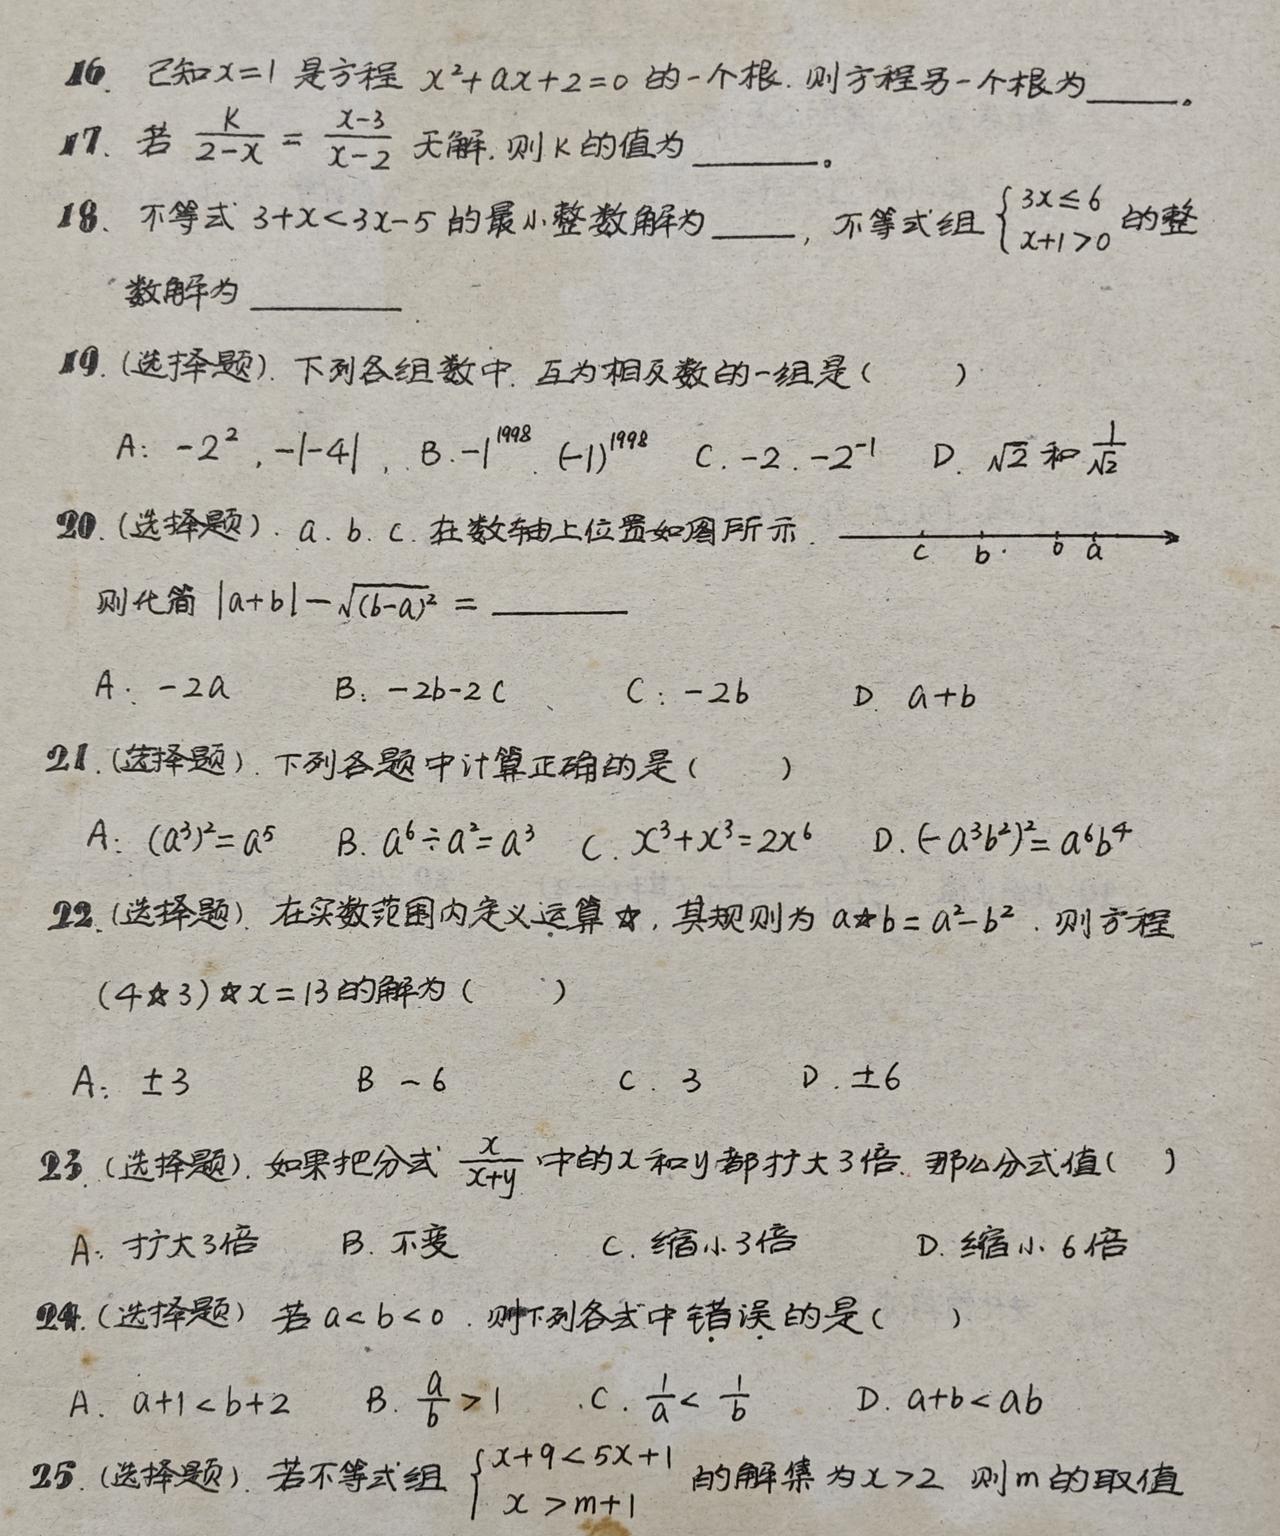 16. 己知x=1 是方程 x²+ax+2=0 的一个根. 则方程另一个根为______。
17. 若 k/(2-x) = (x-3)/(x-2) 无解. 则k的值为 ______。
18. 不等式 3+x<3x-5 的最小整数解为____, 不等式组 {3x≤6 x+1>0 的整
数解为 ______
19. (选择题). 下列各组数中. 互为相反数的一组是( )
A: -2², -|-4|, B. -1¹⁹⁹⁸ . (-1)¹⁹⁹⁸ C. -2 . -2⁻¹ D. √2 和 1/√2
20. (选择题). a. b. c. 在数轴上位置如图所示. c b 0 a
则化简 |a+b|-√(b-a)² = ______
A: -2a B: -2b-2c C: -2b D. a+b
21. (选择题). 下列各题中计算正确的是( )
A: (a³)²=a⁵ B. a⁶÷a²=a³ C. x³+x³=2x⁶ D. (-a³b²)²=a⁶b⁴
22. (选择题). 在实数范围内定义运算☆, 其规则为 a☆b=a²-b². 则方程
(4☆3)☆x=13的解为( )
A: ±3 B -6 C. 3 D. ±6
23. (选择题). 如果把分式 x/(x+y) 中的x和y都扩大3倍. 那么分式值( )
A: 扩大3倍 B. 不变 C. 缩小3倍 D. 缩小6倍
24. (选择题) 若 a<b<0. 则下列各式中错误的是( )
A. a+1<b+2 B. a/b>1 C. 1/a<1/b D. a+b<ab
25. (选择题). 若不等式组 {x+9<5x+1 x>m+1 的解集为x>2 则m的取值